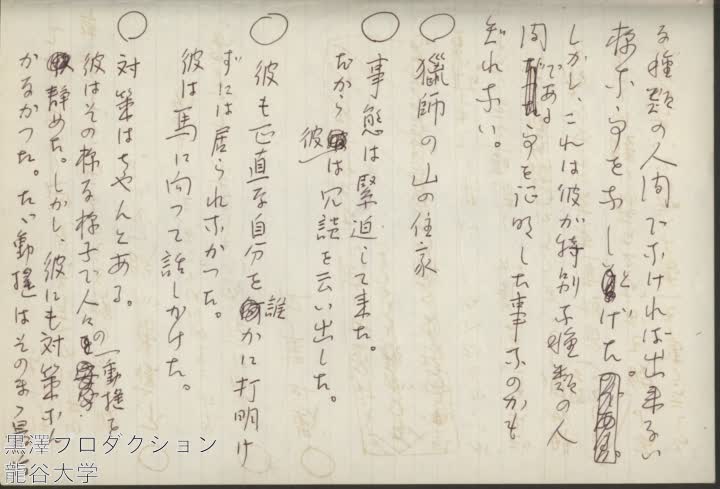 る種類の人間でなければ出来ない
様な事をなしとげた。
しかし、これは彼が特別な種類の人
間である事を証明した事なのかも
知れない。
○ 獵師の山の住家
○ 事態は緊迫して来た。
だから彼は冗談を云い出した。
○ 彼も正直な自分を誰かに打明け
ずには居られなかった。
彼は馬に向って話しかけた。
○ 対策はちゃんとある。
彼はその様な様子で人々の動揺を
静めた。しかし、彼にも対策なん
かなかった。たゞ動揺はそのまゝ
黒澤プロダクション
龍谷大学